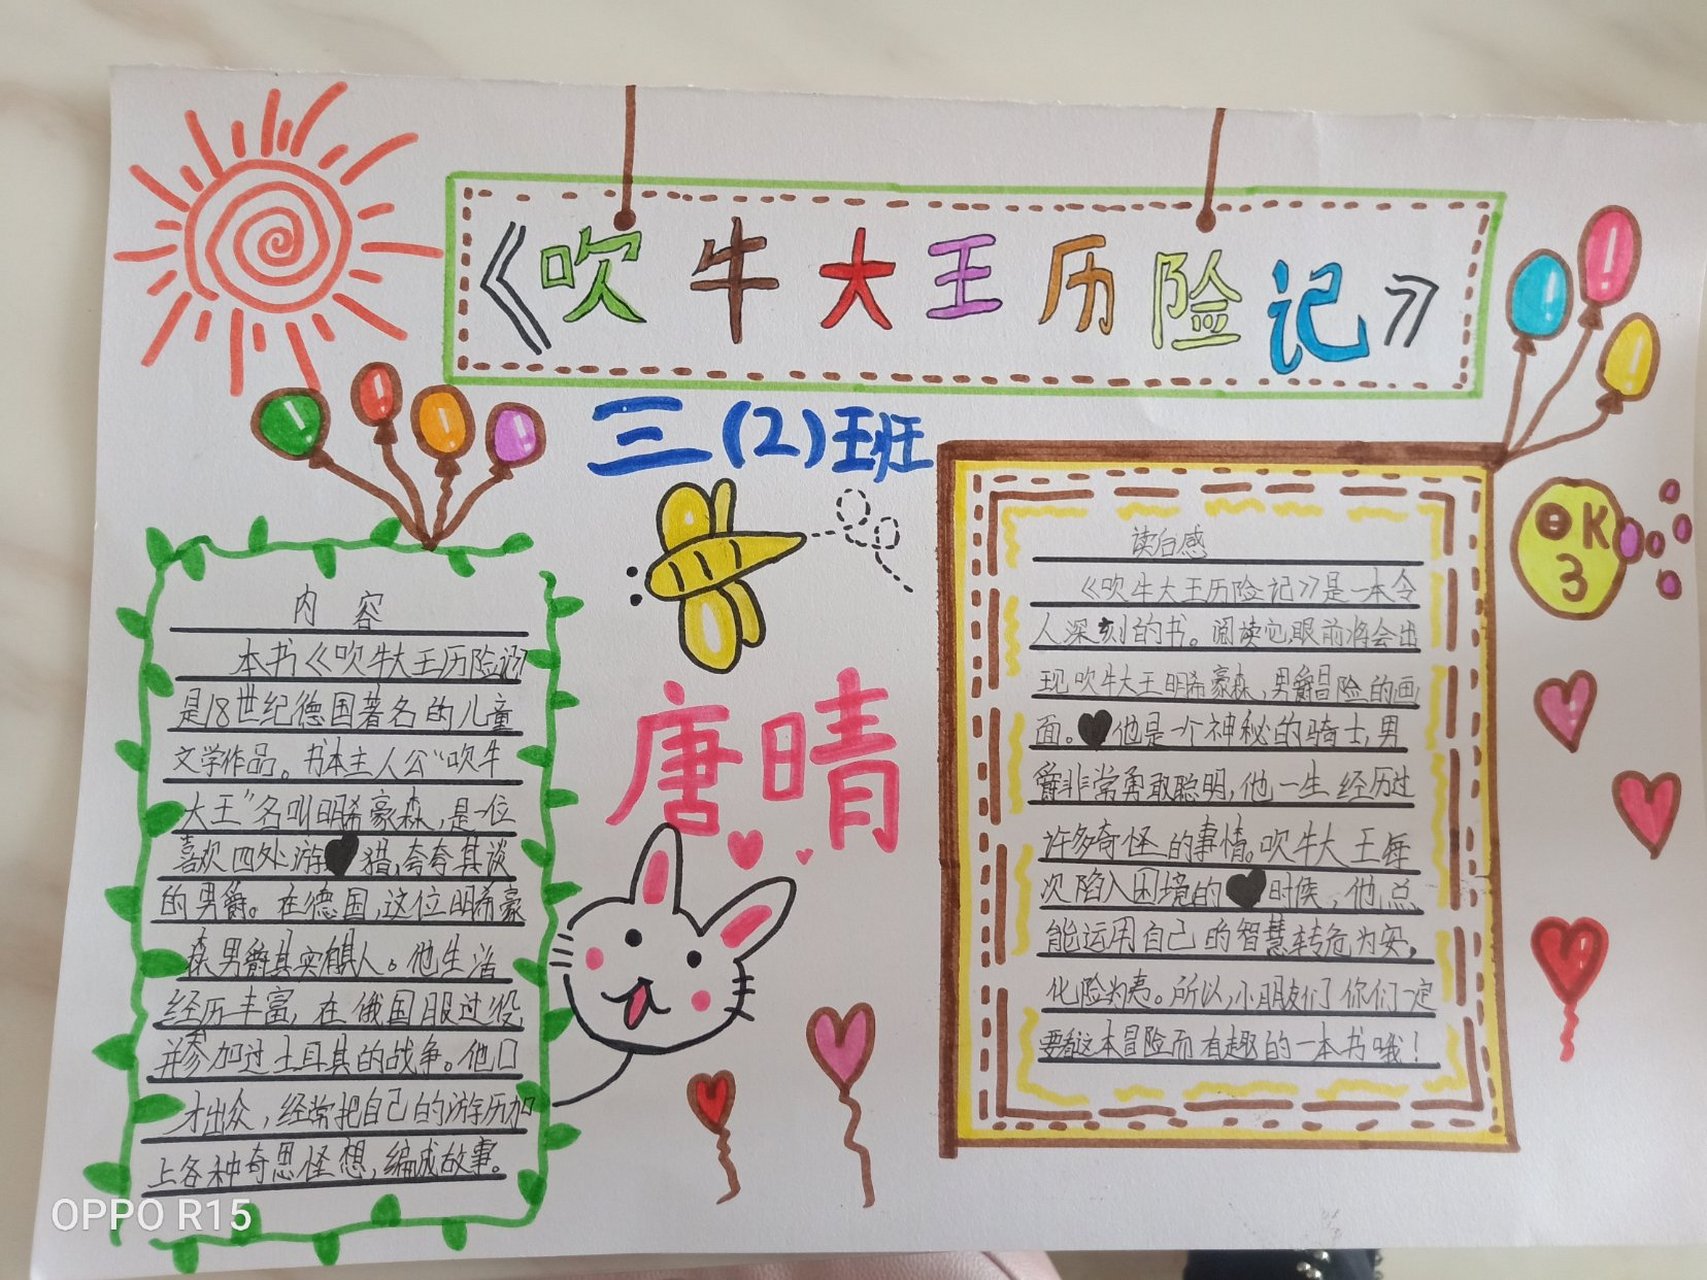 《吹牛大王历险记》
三(2)班
唐晴
内 容
本书《吹牛大王历险记》
是18世纪德国著名的儿童
文学作品。书本主人公“吹牛
大王”名叫明希豪森,是一位
喜欢四处游猎,夸夸其谈
的男爵。在德国,这位明希豪
森男爵其实有其人。他生活
经历丰富,在俄国服过役,
并参加过土耳其的战争。他口
才出众,经常把自己的游历加
上各种奇思怪想,编成故事。
读后感
《吹牛大王历险记》是一本令
人深刻的书。阅读它,眼前将会出
现吹牛大王明希豪森,男爵冒险的画
面。他是一个神秘的骑士,男
爵非常勇敢聪明,他一生 经历过
许多奇怪的事情。吹牛大王每
次陷入困境的时候,他总
能运用自己的智慧转危为安,
化险为夷。所以,小朋友们你们一定
要看这本冒险而有趣的一本书哦!
OK
3
OPPO R15